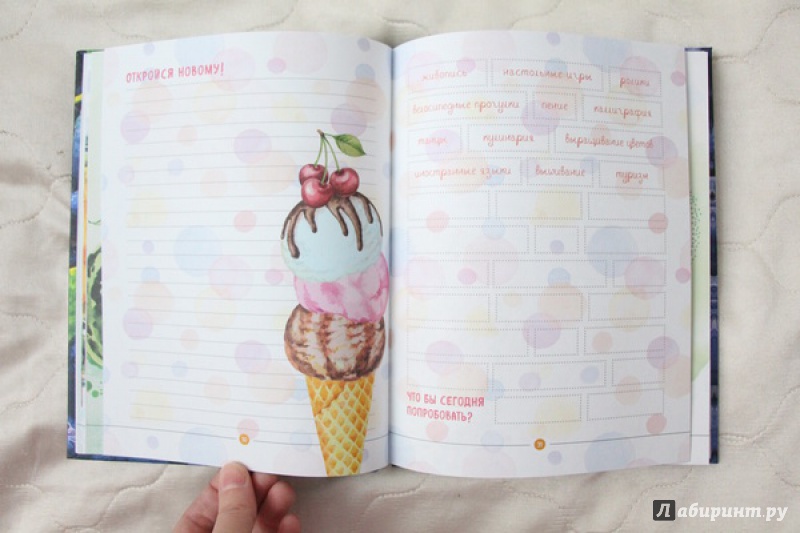 ОТКРОЙСЯ НОВОМУ!
живопись настольные игры ролики
велосипедные прогулки пение каллиграфия
танцы кулинария выращивание цветов
иностранные языки вышивание туризм
ЧТО БЫ СЕГОДНЯ
ПОПРОБОВАТЬ?
Лабиринт.ру